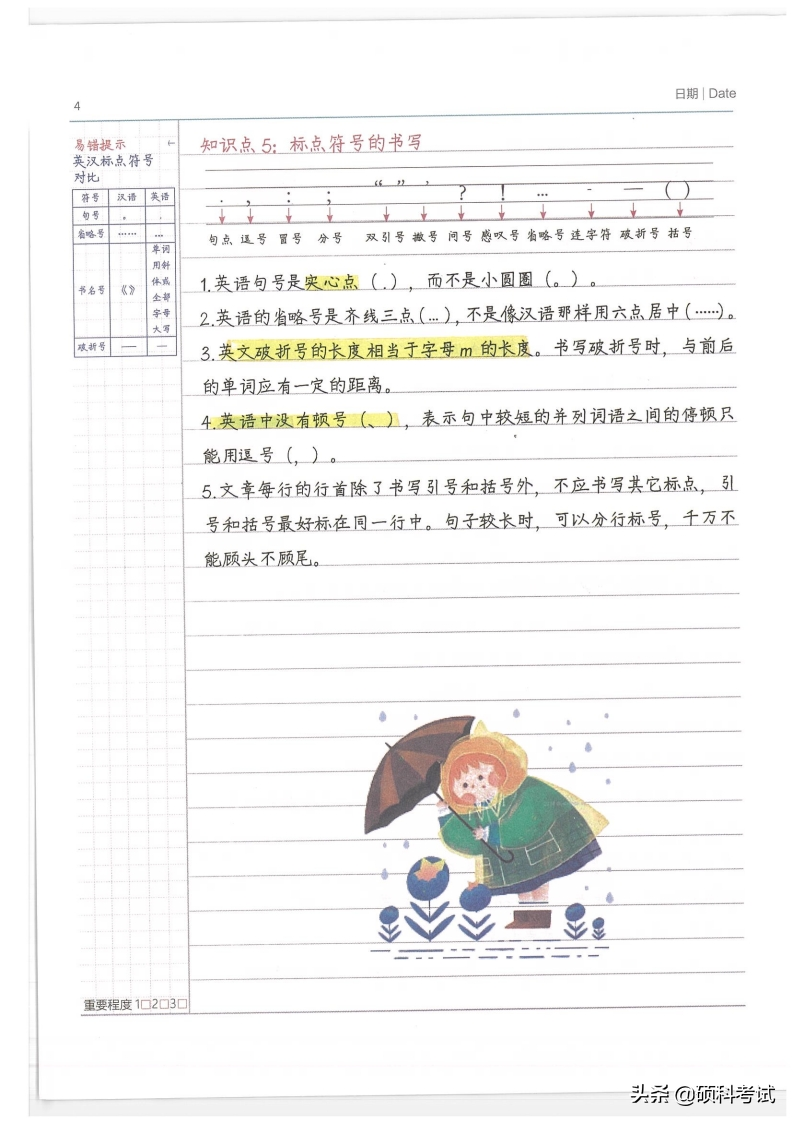 4
日期 | Date
易错提示
英汉标点符号
对比
符号 汉语 英语
句号 。 .
省略号 …… ...
书名号 《》 单词
用斜
体或
全部
字母
大写
破折号 —— —
知识点5：标点符号的书写
. , : ; “ ” ’ ? ! ... - — ( )
句点 逗号 冒号 分号 双引号 撇号 问号 感叹号 省略号 连字符 破折号 括号
1.英语句号是实心点（.），而不是小圆圈（。）。
2.英语的省略号是齐线三点(...)，不是像汉语那样用六点居中(……)。
3.英文破折号的长度相当于字母m的长度。书写破折号时，与前后
的单词应有一定的距离。
4.英语中没有顿号（、），表示句中较短的并列词语之间的停顿只
能用逗号（,）。
5.文章每行的行首除了书写引号和括号外，不应书写其它标点，引
号和括号最好标在同一行中。句子较长时，可以分行标号，千万不
能顾头不顾尾。
重要程度 1□2□3□
头条 @硕科考试